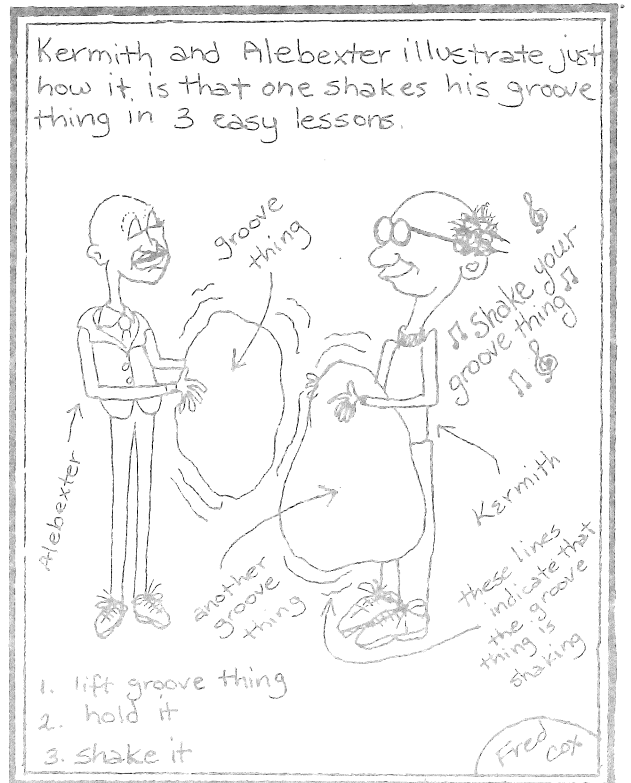 Kermith and Alebexter illustrate just
how it is that one shakes his groove
thing in 3 easy lessons.
groove
thing
♫ Shake your
groove thing ♫
Alebexter
Kermith
another
groove
thing
these lines
indicate that
the groove
thing is
shaking
1. lift groove thing
2. hold it
3. shake it
Fred
Cox